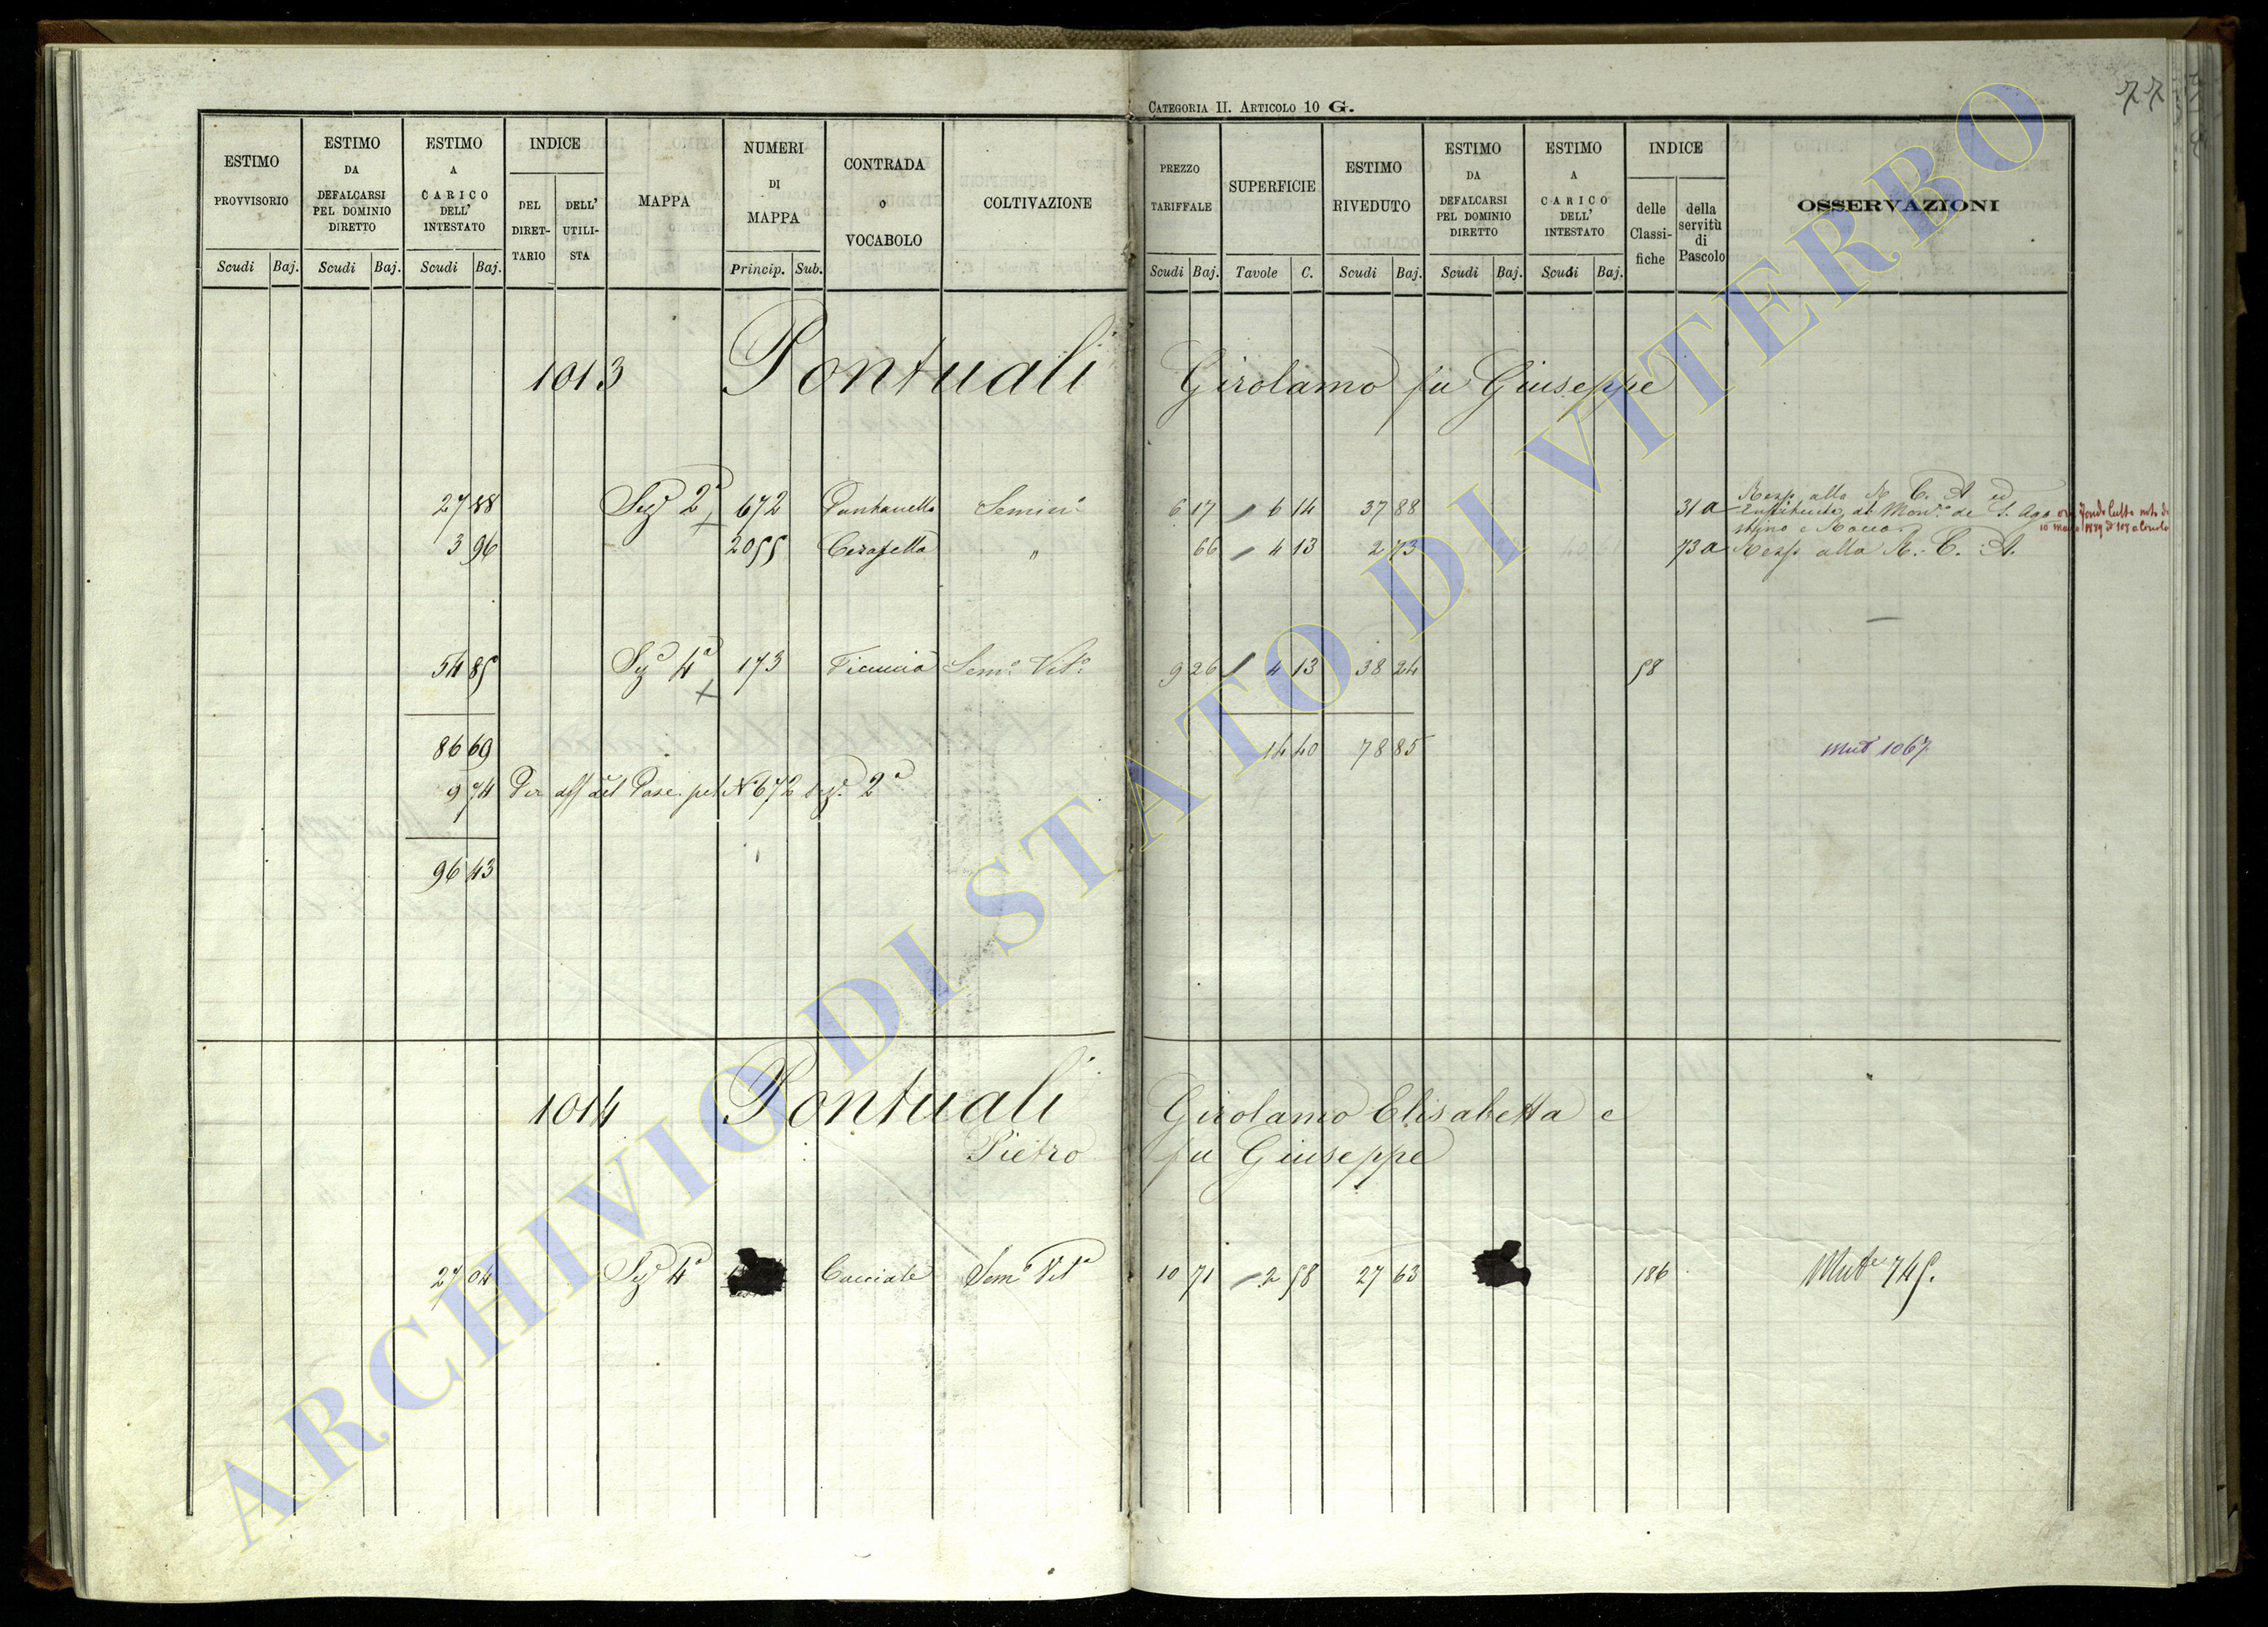 CATEGORIA II. ARTICOLO 10 G.
77
ESTIMO PROVVISORIO Scudi Baj.
ESTIMO DA DEFALCARSI PEL DOMINIO DIRETTO Scudi Baj.
ESTIMO A CARICO DELL' INTESTATO Scudi Baj.
INDICE DEL DIRET-TARIO DELL' UTILI-STA
MAPPA
NUMERI DI MAPPA Princip. Sub.
CONTRADA o VOCABOLO
COLTIVAZIONE
PREZZO TARIFFALE Scudi Baj.
SUPERFICIE Tavole C.
ESTIMO RIVEDUTO Scudi Baj.
ESTIMO DA DEFALCARSI PEL DOMINIO DIRETTO Scudi Baj.
ESTIMO A CARICO DELL' INTESTATO Scudi Baj.
INDICE delle Classi-fiche della servitù di Pascolo
OSSERVAZIONI
1013 Pontuali Girolamo fu Giuseppe
27 88 Sez 2a 672 Pantanella Semin.o 6 17 6 14 37 88 31 a Resp alla R C. A ed
di Mon.o de S. Ago
stino e Rocco
3 96 2055 " 66 4 13 2 73 73 a Resp alla R. C. A.
54 85 Sez 4a 173 Ficuccia Sem.o Vit.o 9 26 4 13 38 24 58
86 69 14 40 78 85 Mut 1067
9 74 Per aff del Pasc. pel N 672 sez. 2a
96 43
1014 Pontuali Girolamo Elisabetta e
Pietro fu Giuseppe
27 04 Sez 4a Cacciate Sem.o Vit.o 10 71 2 58 27 63 186 Mut.e 745.
ARCHIVIO DI STATO DI VITERBO